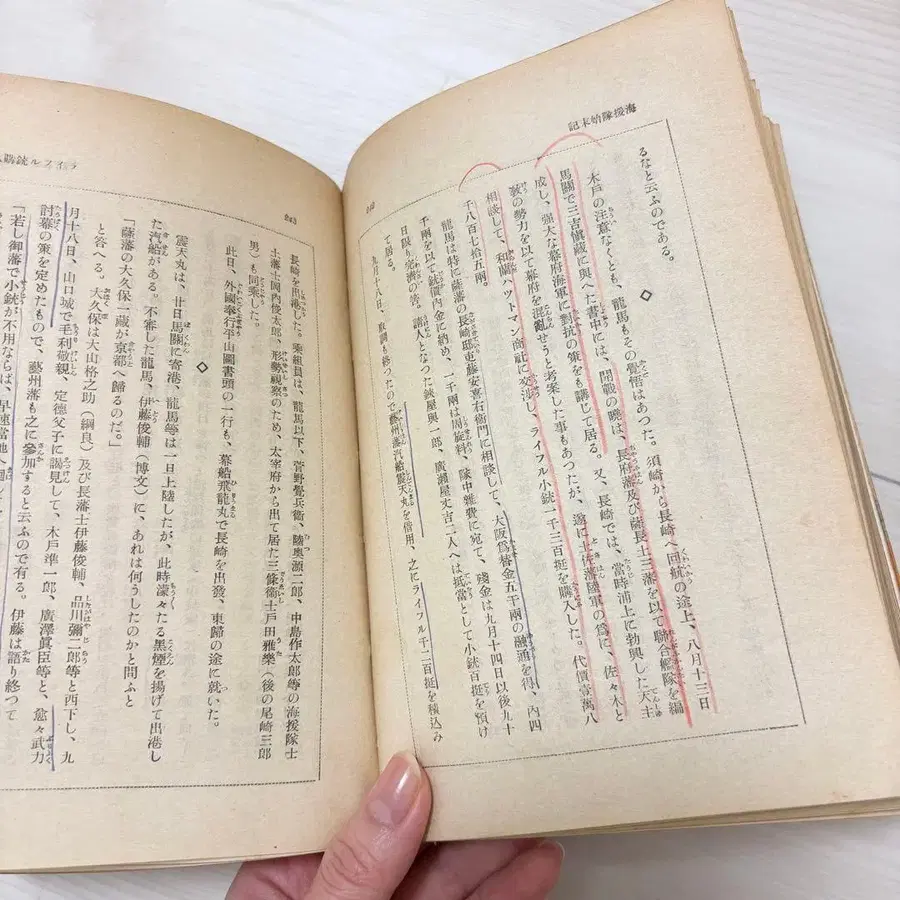 海援隊始末記
るなと云ふのである。
◇
木戸の注意なくとも、龍馬もその覺悟はあつた。須崎から長崎へ回航の途上、八月十三日
馬關で三吉愼藏に與へた書中には、開戰の曉は、長府藩及び薩長土三藩を以て聯合艦隊を編
成し、強大な幕府海軍に對抗の策をも講じて居る。又、長崎では、當時浦上に勃興した天主
敎の勢力を以て幕府を混亂せうと考案した事もあつたが、遂に土佐藩陸軍の爲に、佐々木と
相談して、和蘭ハットマン商社に交渉し、ライフル小銃一千三百挺を購入した。代價壹萬八
千八百七拾五兩。
龍馬は特に薩藩の長崎邸東藤安喜右衞門に相談して、大阪爲替金五千兩の融通を得、內四
千兩を以て銃價內金に納め、一千兩は周旋料、隊中雜費に宛て、殘金は九月十四日以後九十
日限り完濟の筈。請人となつた鋏屋與一郎、廣瀨屋丈吉二人へは抵當として小銃百挺を預け
て居る。
九月十八日、取調も終つたので藝州藩汽船震天丸を借用、之にライフル千二百挺を積込み
242
243
長崎を出港した。乘組員は、龍馬以下、菅野覺兵衞、陸奧源二郎、中島作太郎等の海援隊士
土藩士岡內俊太郎、形勢視察のため、太宰府から出て居た三條衞士戶田雅樂(後の尾崎三郎
男)も同乘した。
此日、外國奉行平山圖書頭の一行も、幕船飛龍丸で長崎を出發、東歸の途に就いた。
◇
震天丸は、廿日馬關に寄港、龍馬等は一日上陸したが、此時濛々たる黑煙を揚げて出港し
た汽船がある。不審した龍馬、伊藤俊輔(博文)に、あれは何うしたのかと問ふと
「薩藩の大久保一藏が京都へ歸るのだ。」
と答へる。大久保は大山格之助(綱良)及び長藩士伊藤俊輔、品川彌二郎等と西下し、九
月十八日、山口城で毛利敬親、定德父子に謁見して、木戶準一郎、廣澤眞臣等と、愈々武力
討幕の策を定めたもので、藝州藩も之に參加すると云ふので有る。伊藤は語り終つて
「若し御藩で小銃が不用ならば、早速當地へ
ライフル銃購